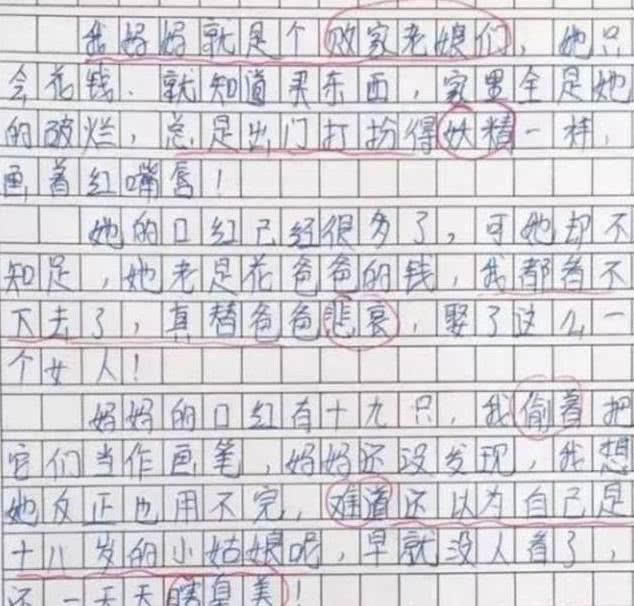 我妈妈就是个败家老娘们，她只
会花钱、就知道买东西，家里全是她
的破烂，总是出门打扮得妖精一样，
画着红嘴唇！
她的口红已经很多了，可她却不
知足，她老是花爸爸的钱，我都看不
下去了，真替爸爸悲哀，娶了这么一
个女人！
妈妈的口红有十九只，我偷着把
它们当作画笔，妈妈还没发现，我想
她反正也用不完，难道还以为自己是
十八岁的小姑娘呢，早就没人看了，
还一天天瞎臭美！